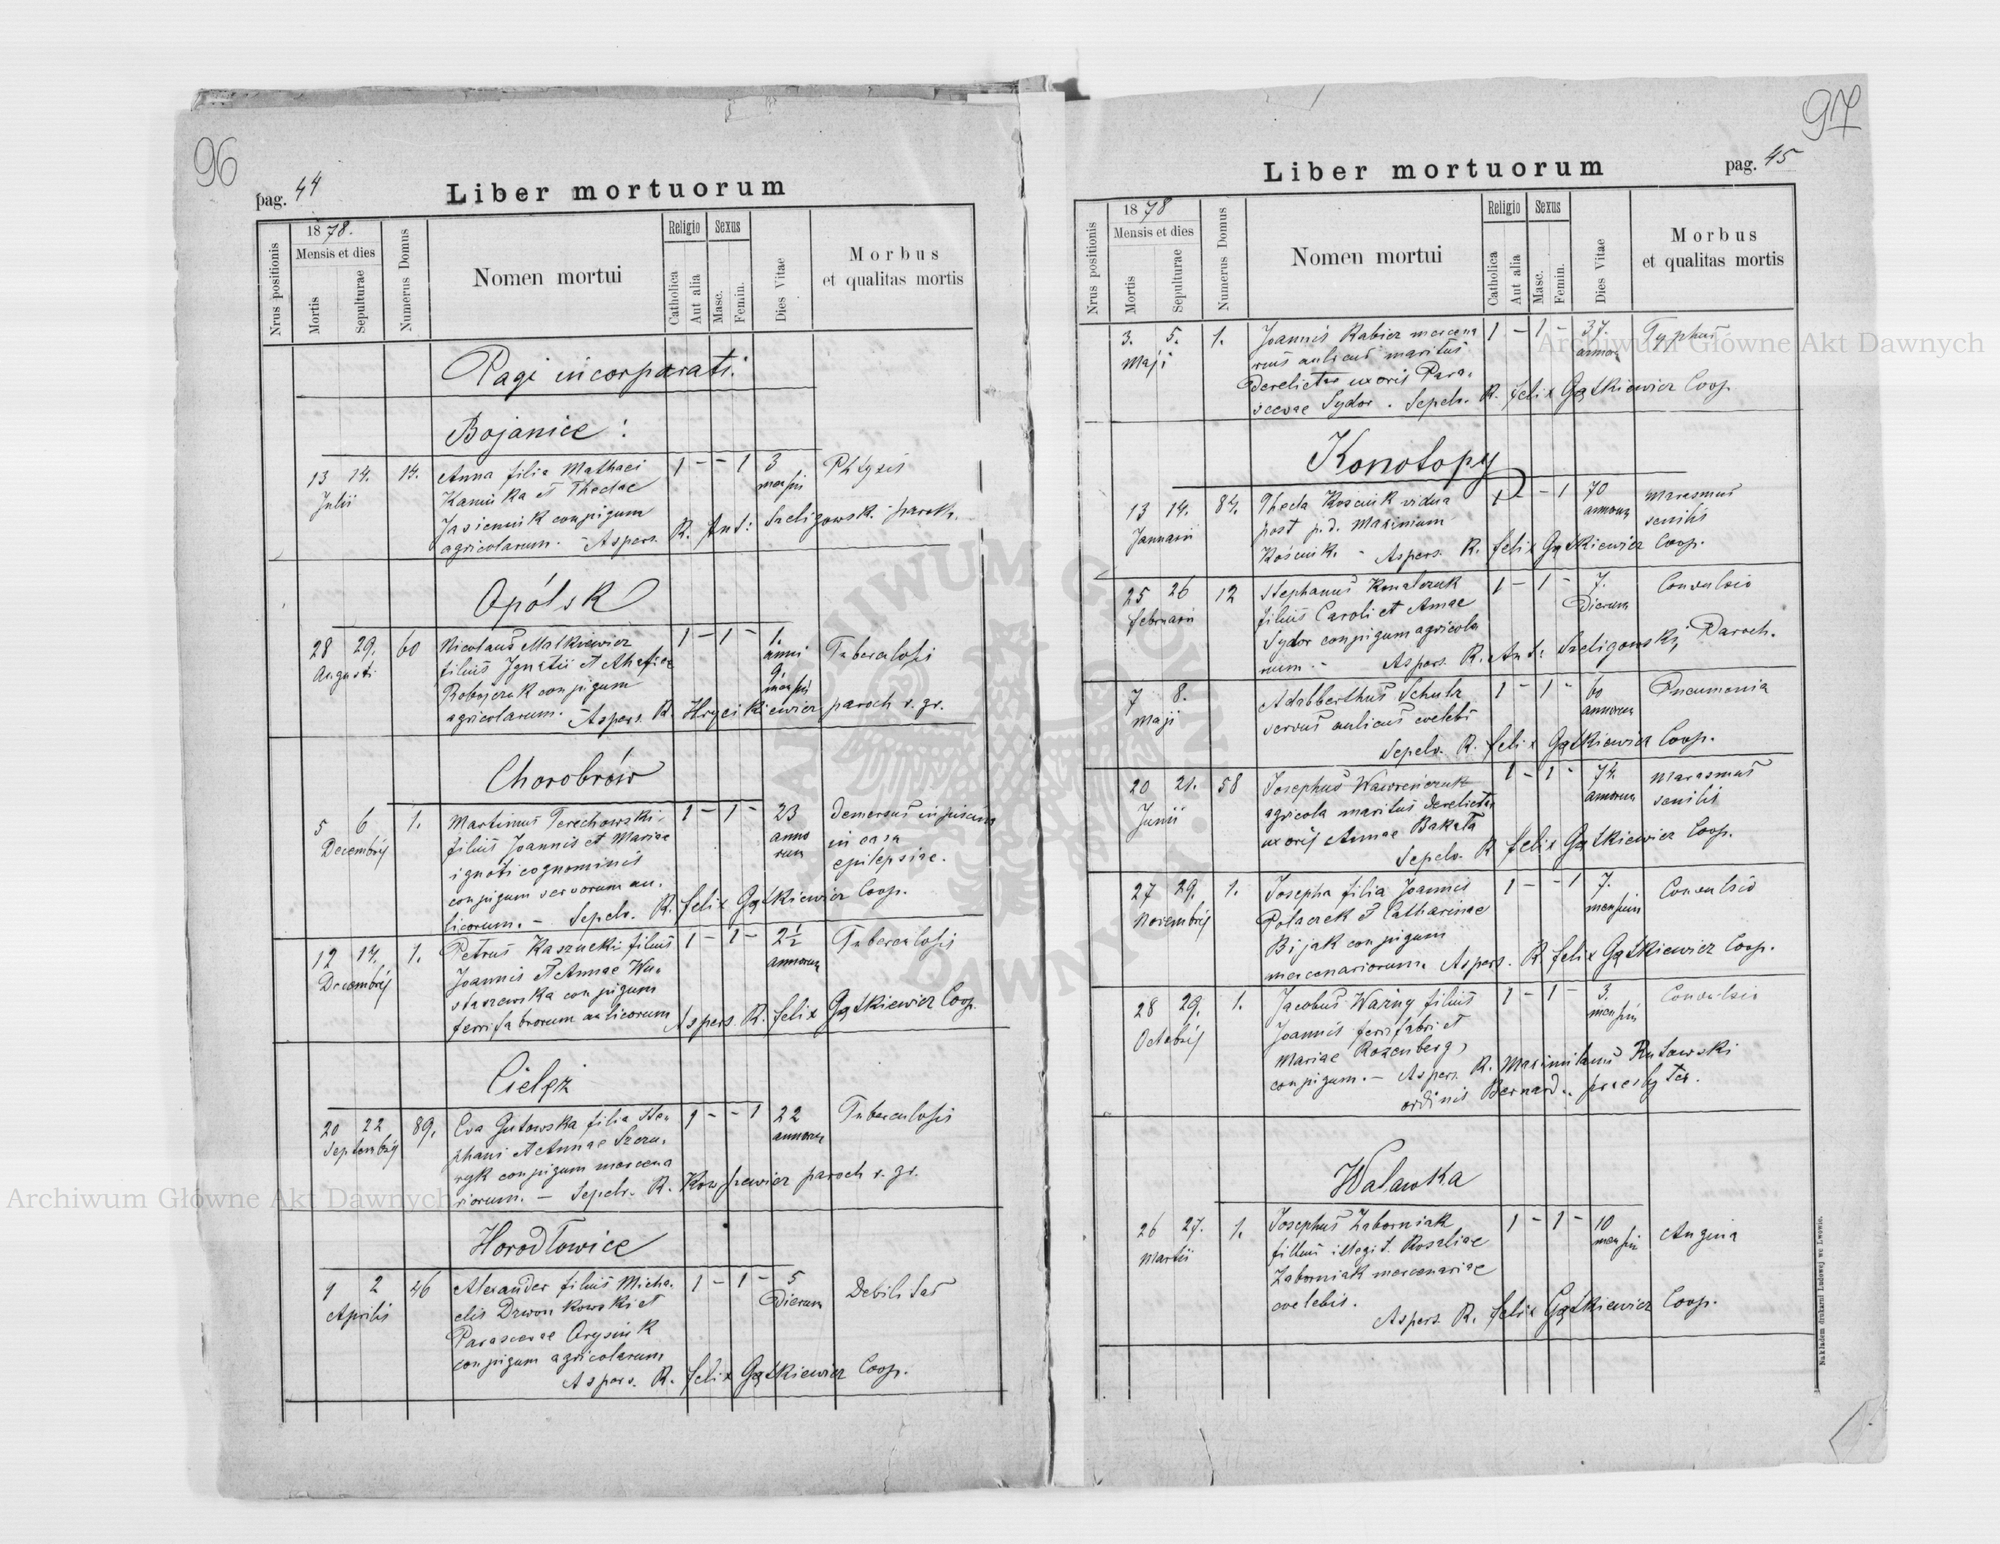 96
pag. 44
Liber mortuorum
Nrus positionis
1878.
Mensis et dies
Mortis
Sepulturae
Numerus Domus
Nomen mortui
Religio
Catholica
Aut alia
Sexus
Masc.
Femin.
Dies Vitae
Morbus
et qualitas mortis
Pagi incorporati.
Bojanice:
13 14. 14. Anna filia Mathaei 1 - - 1 3 Phtysis
Julii Kamińka et Theclae mensium
Jasieniuk conjugum
agricolarum. - Aspers. R. Ant: Szeligowsk. paroch.
Opólsk
28 29. 60 Nicolaus Malkiewicz 1 - 1 - 1. Tuberculosis
Augusti filius Ignatii et anni
9. mensium
conjugum
agricolarum. Aspers. R. Hrycikiewicz paroch r. gr.
Chorobrów
5 6 1. Martinus Terechowski 1 - 1 - 23 Demersus in
Decembris filius Joannis et Mariae annorum in casu
ignoti cognominis epilepsiae.
conjugum servorum au-
licorum. - Sepelv. R. Felix Gątkiewicz Coop.
12 14. 1. Petrus Kaszncki filius 1 - 1 - 2½ Tuberculosis
Decembris Joannis et Annae Wa- annorum
staszewska conjugum
ferrifabrorum aulicorum Aspers. R. Felix Gątkiewicz Coop.
Cielęż
20 22 89. Eva Gutowska filia Ste- 1 - - 1 22 Tuberculosis
Septembris phani et Annae Szczu- annorum
ryk conjugum mercena
riorum. - Sepelv. R. paroch r. gr.
Horodłowice
1 2 46 Alexander filius Micha- 1 - 1 - 5 Debilitas
Aprilis elis Dzwonkowski et Dierum
Parascevae Orysiuk
conjugum agricolarum
Aspers. R. Felix Gątkiewicz Coop.
97
Liber mortuorum
pag. 45
Nrus positionis
1878
Mensis et dies
Mortis
Sepulturae
Numerus Domus
Nomen mortui
Religio
Catholica
Aut alia
Sexus
Masc.
Femin.
Dies Vitae
Morbus
et qualitas mortis
3. 5. 1. Joannis Rabicz mercena 1 - 1 - 37. Typhus
Maji rius aulicus maritus annorum
derelictae uxoris Para-
scevae Sydor. Sepelv. R. Felix Gątkiewicz Coop.
Konotopy
13 14. 84. Thecla Kosciuk vidua 1 - - 1 70 Marasmus
Januarii post p.d. Maximum annorum senilis
Kościuk. - Aspers. R. Felix Gątkiewicz Coop.
25 26 12 Stephanus Kowalczuk 1 - 1 - 7. Convulsio
Februarii filius Caroli et Annae Dierum
Sydor conjugum agricola
rum. - Aspers. R. Ant: Szeligowski, Paroch.
7 8. Adalbertus Schulz 1 - 1 - 60 Pneumonia
Maji servus aulicus coelebs annorum
Sepelv. R. Felix Gątkiewicz Coop.
20 21. 58 Josephus Wawreńczuk 1 - 1 - 74. Marasmus
Junii agricola maritus derelictae annorum senilis
uxoris Annae Bakała
Sepelv. R. Felix Gątkiewicz Coop.
27 29. 1. Josepha filia Joannis 1 - - 1 7. Convulsio
Novembris Polaczek et Catharinae mensium
Bijak conjugum
mercenariorum. Aspers. R. Felix Gątkiewicz Coop.
28 29. 1. Jacobus Ważny filius 1 - 1 - 3. Convulsio
Octobris Joannis ferrifabri et mensium
Mariae Rozenberg,
conjugum. - Aspers. R. Maximilianus Rutowski
ordinis Bernard. presbyter.
Waławka
26 27. 1. Josephus Zaborniak 1 - 1 - 10 Angina
Martii filius illegit. Rosaliae mensium
Zaborniak mercenariae
coelebis.
Aspers. R. Felix Gątkiewicz Coop.
Nakładem drukarni Ludowej we Lwowie.
Archiwum Główne Akt Dawnych
Archiwum Główne Akt Dawnych
ARCHIWUM GŁÓWNE AKT DAWNYCH